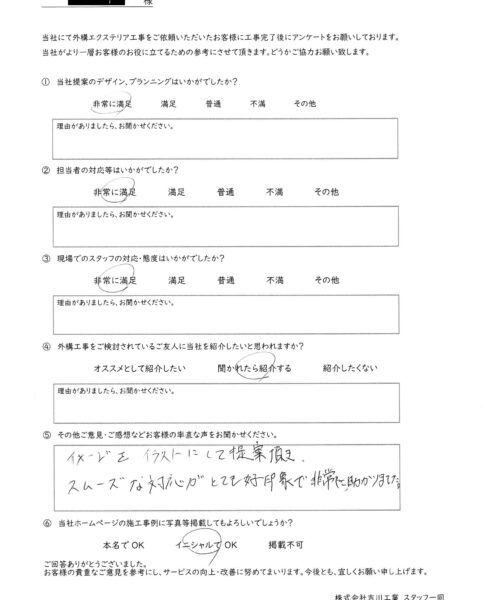 様
当社にて外構エクステリア工事をご依頼いただいたお客様に工事完了後にアンケートをお願いしております。
当社がより一層お客様のお役に立てるための参考にさせて頂きます。どうかご協力お願い致します。
① 当社提案のデザイン、プランニングはいかがでしたか?
非常に満足 満足 普通 不満 その他
理由がありましたら、お聞かせください。
② 担当者の対応等はいかがでしたか?
非常に満足 満足 普通 不満 その他
理由がありましたら、お聞かせください。
③ 現場でのスタッフの対応・態度はいかがでしたか?
非常に満足 満足 普通 不満 その他
理由がありましたら、お聞かせください。
④ 外構工事をご検討されているご友人に当社を紹介したいと思われますか?
オススメとして紹介したい 聞かれたら紹介する 紹介したくない
理由がありましたら、お聞かせください。
⑤ その他ご意見・ご感想などお客様の率直な声をお聞かせください。
イメージを イラストにして提案頂き、
スムーズな対応がとても好印象で非常に助かりました。
⑥ 当社ホームページの施工事例に写真等掲載してもよろしいでしょうか?
本名でOK イニシャルでOK 掲載不可
ご回答ありがとうございました。
お客様の貴重なご意見を参考にし、サービスの向上・改善に努めてまいります。今後とも、宜しくお願い申し上げます。
株式会社吉川工業 スタッフ一同